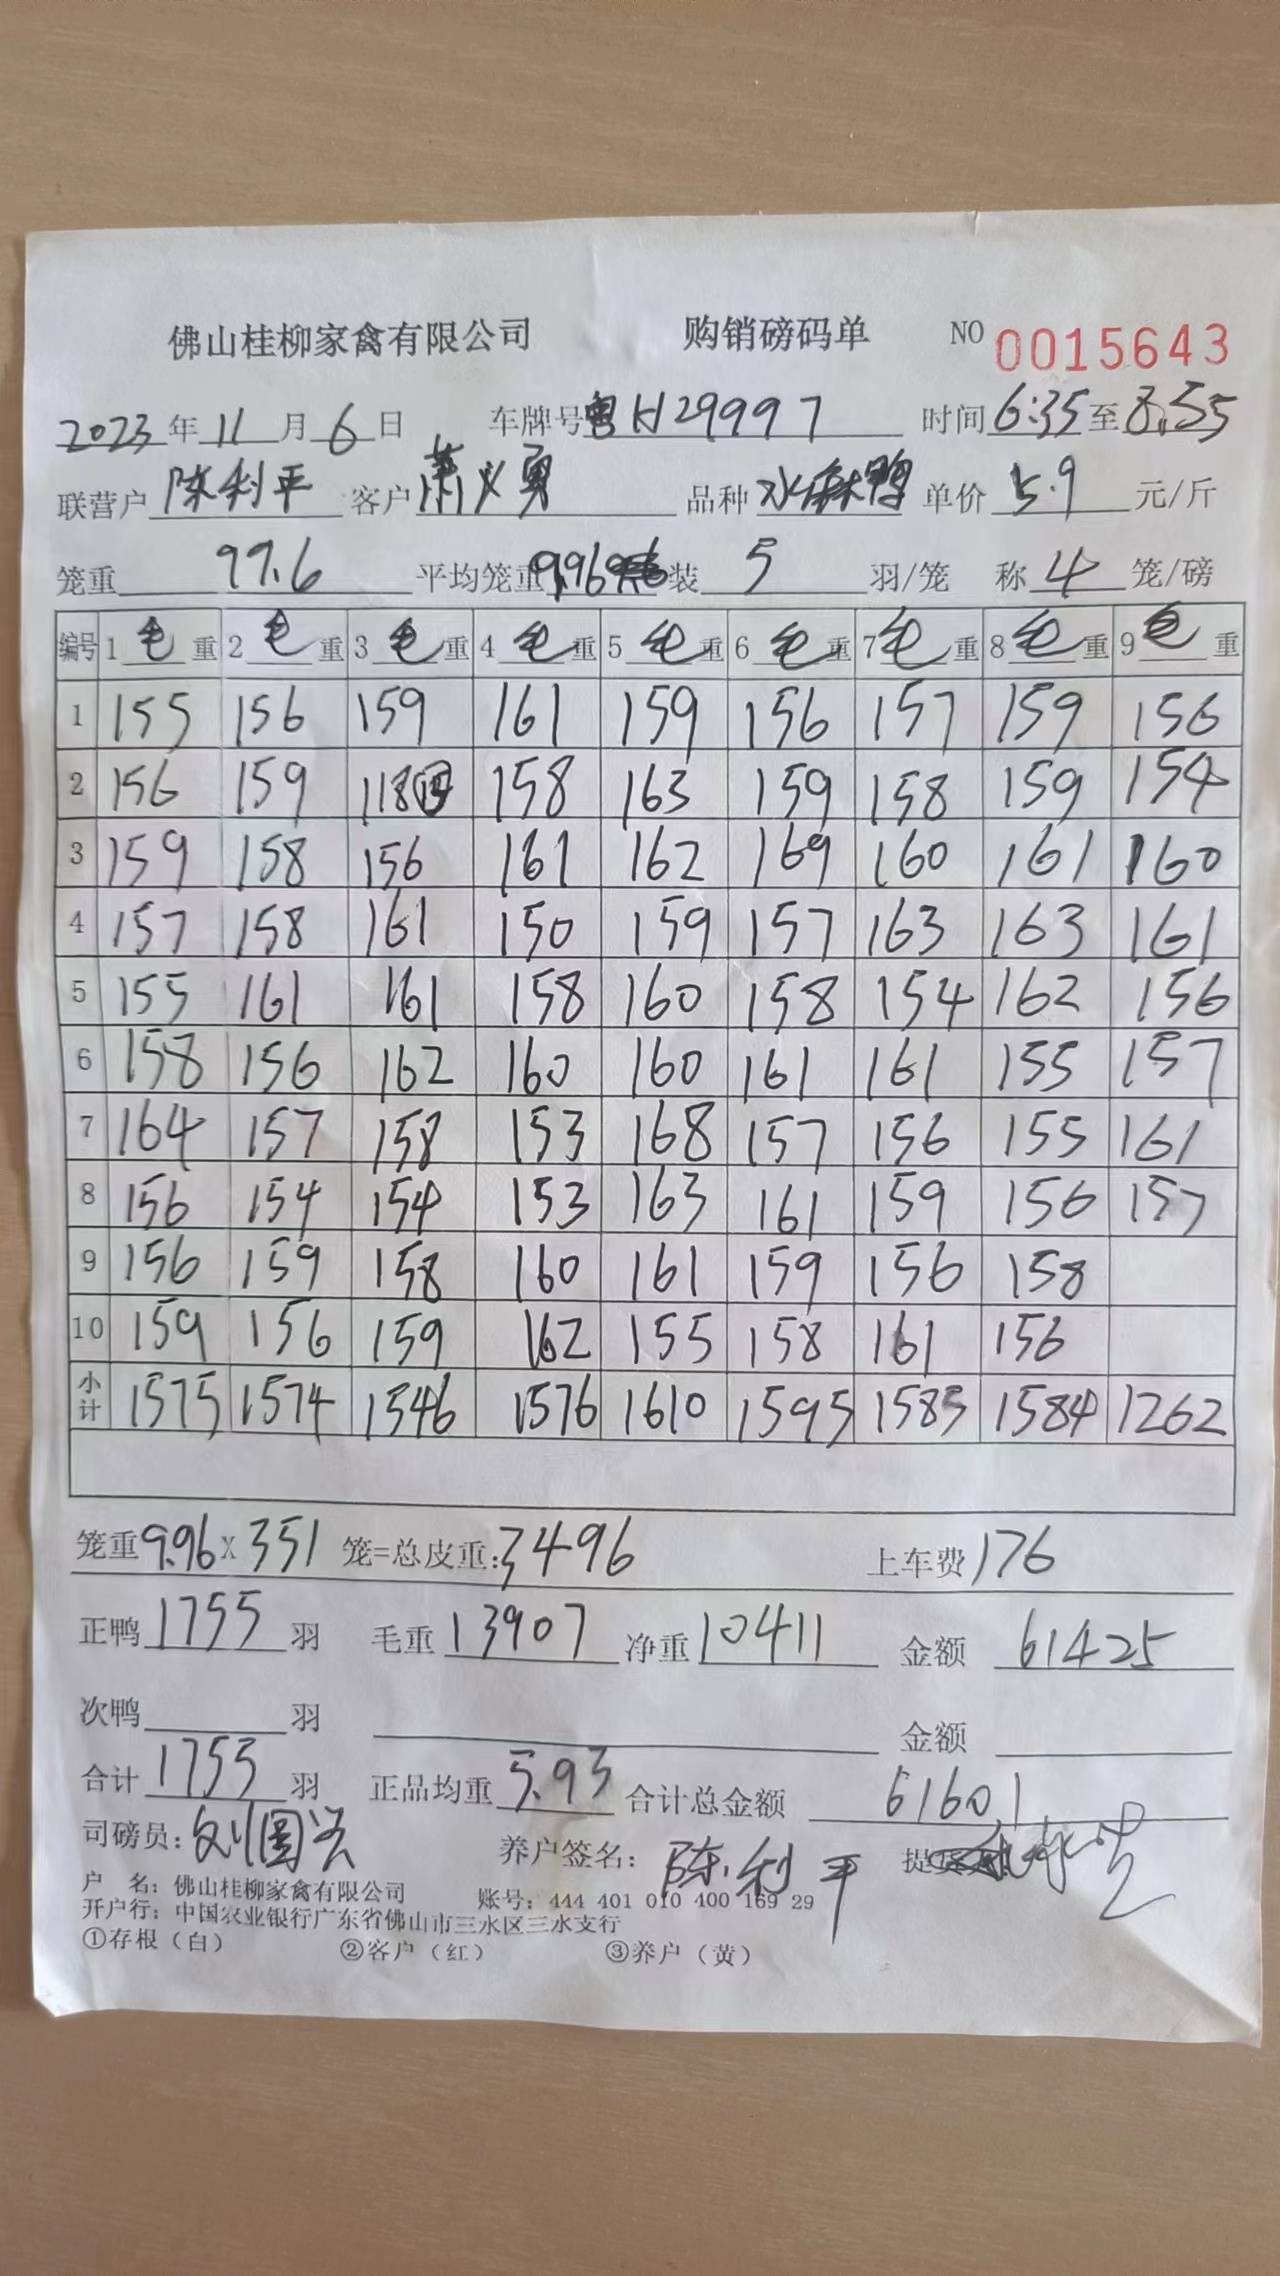 佛山桂柳家禽有限公司 购销磅码单 NO 0015643
2023年11月6日 车牌号粤H29997 时间6:35至8:55
联营户陈利平 客户萧义勇 品种水麻鸭 单价5.9元/斤
笼重99.6 平均笼重9.96装5羽/笼 称4笼/磅
编号 1毛重 2毛重 3毛重 4毛重 5毛重 6毛重 7毛重 8毛重 9毛重
1 155 156 159 161 159 156 157 159 156
2 156 159 118 158 163 159 158 159 154
3 159 158 156 161 162 169 160 161 160
4 157 158 161 150 159 157 163 163 161
5 155 161 161 158 160 158 154 162 156
6 158 156 162 160 160 161 161 155 157
7 164 157 158 153 168 157 156 155 161
8 156 154 154 153 163 161 159 156 157
9 156 159 158 160 161 159 156 158
10 159 156 159 162 155 158 161 156
小计 1575 1574 1546 1576 1610 1595 1585 1584 1262
笼重9.96X351笼=总皮重:3496 上车费176
正鸭1755羽 毛重13907 净重10411 金额61425
次鸭 羽 金额
合计1755羽 正品均重5.93 合计总金额61601
司磅员:刘国 养户签名:陈利平 提
户 名:佛山桂柳家禽有限公司 账号:444 401 010 400 169 29
开户行:中国农业银行广东省佛山市三水区三水支行
①存根(白) ②客户(红) ③养户(黄)